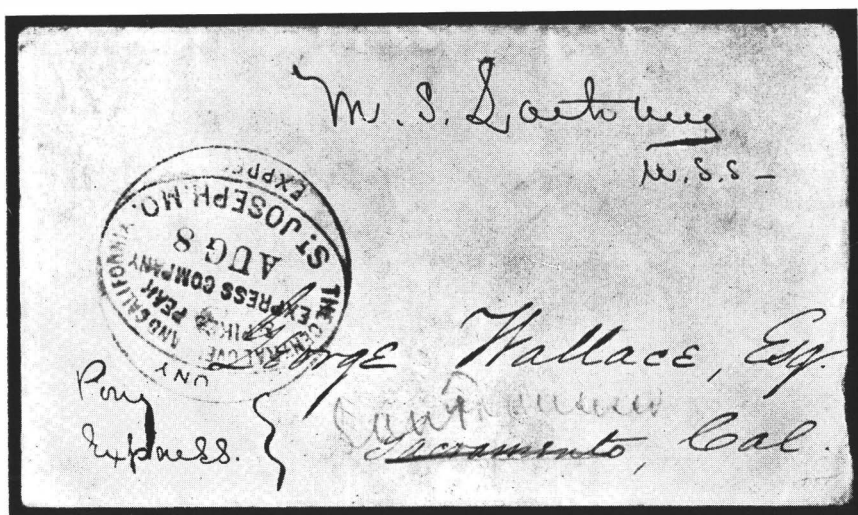 M. S.
U.S.S -
PONY EXPRESS
THE CENTRAL OVERLAND CALIFORNIA
AND PIKES PEAK
EXPRESS COMPANY
AUG 8
ST JOSEPH, MO.
George Wallace, Esq.
San Francisco
Sacramento, Cal.
Pony
Express.